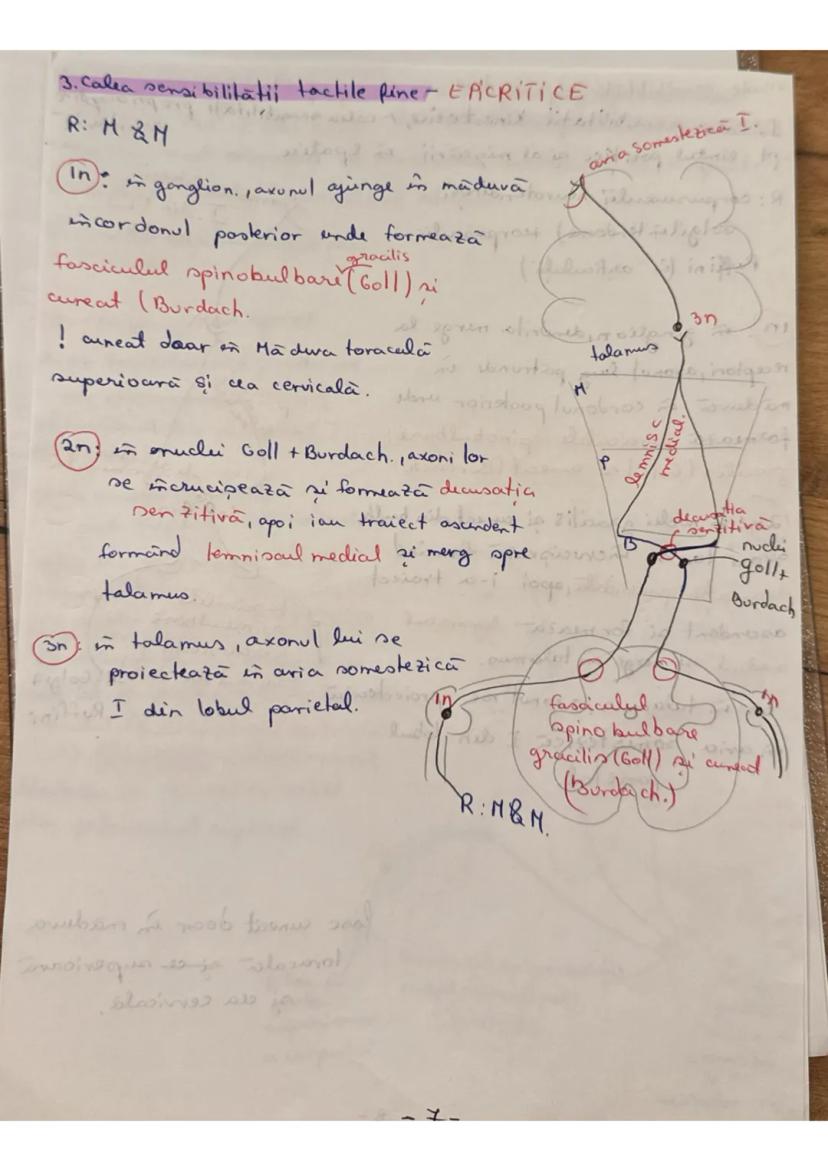 3. Calea sensibilității tactile fine - EPICRITICE
R: M & M
1n: în ganglion, axonul ajunge în măduvă
în cordonul posterior unde formează
gracilis
fasciculul spinobulbare (Goll) și
cuneat (Burdach.
! cuneat doar în Măduva toracală
superioară și cea cervicală.
2n: în nuclei Goll + Burdach, axonii lor
se încrucișează și formează decusația
senzitivă, apoi iau traiect ascendent
formând lemniscul medial și merg spre
talamus.
3n: în talamus, axonul lui se
proiectează în aria somestezică
I din lobul parietal.
aria somestezică I.
3n
talamus
M
P
lemnisc
medial.
decusația
senzitivă
B
nuclei
goll+
Burdach
1n
1n
fasciculul
spinobulbare
gracilis (Goll) și cuneat
(Burdach.)
R: M & M.
- 7 -